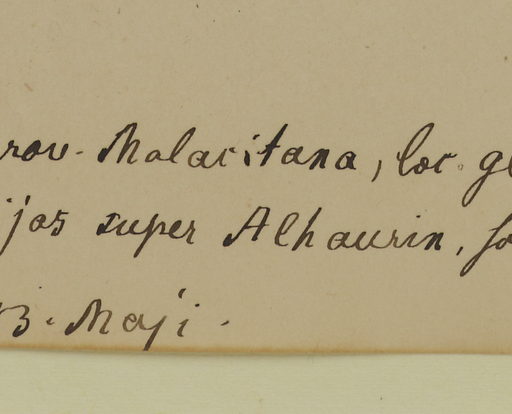 rov. Malacitana, loc. gl
ijos super Alhaurin, so
13. Maji.